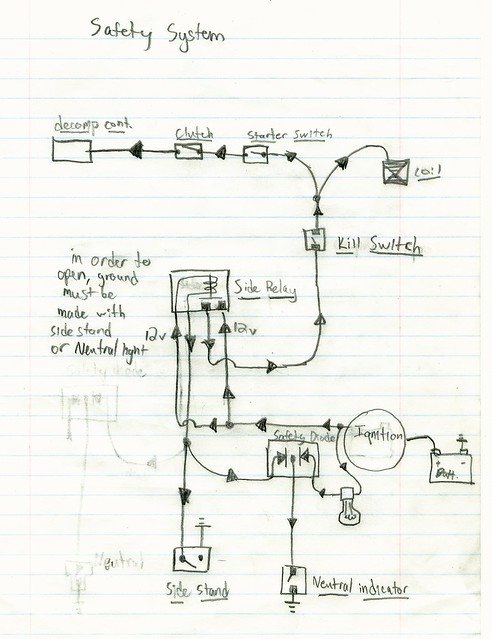 Safety System
decomp cont.
Clutch
Starter Switch
coil
Kill Switch
in order to
open, ground
must be
made with
side stand
or Neutral light
Side Relay
12v
12v
Safety Diode
Ignition
+ -
Batt.
Neutral
Side Stand
Neutral indicator